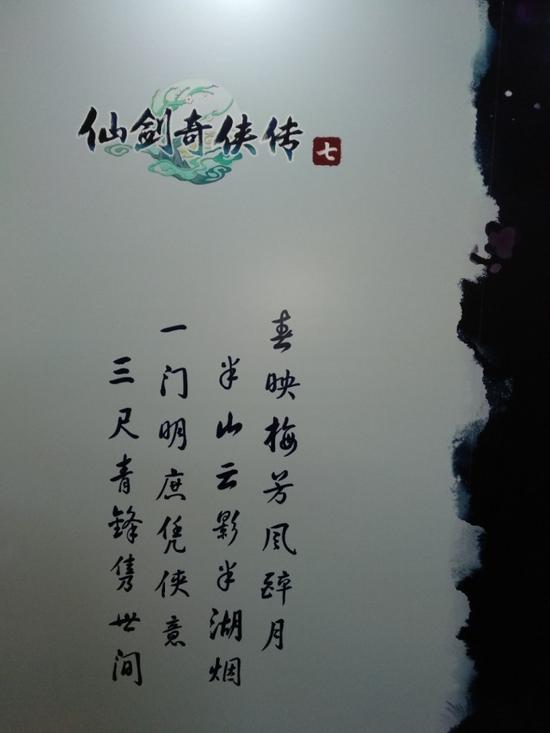 仙剑奇侠传七
春映梅芳风醉月
半山云影半湖烟
一门明庶凭侠意
三尺青锋隽世间